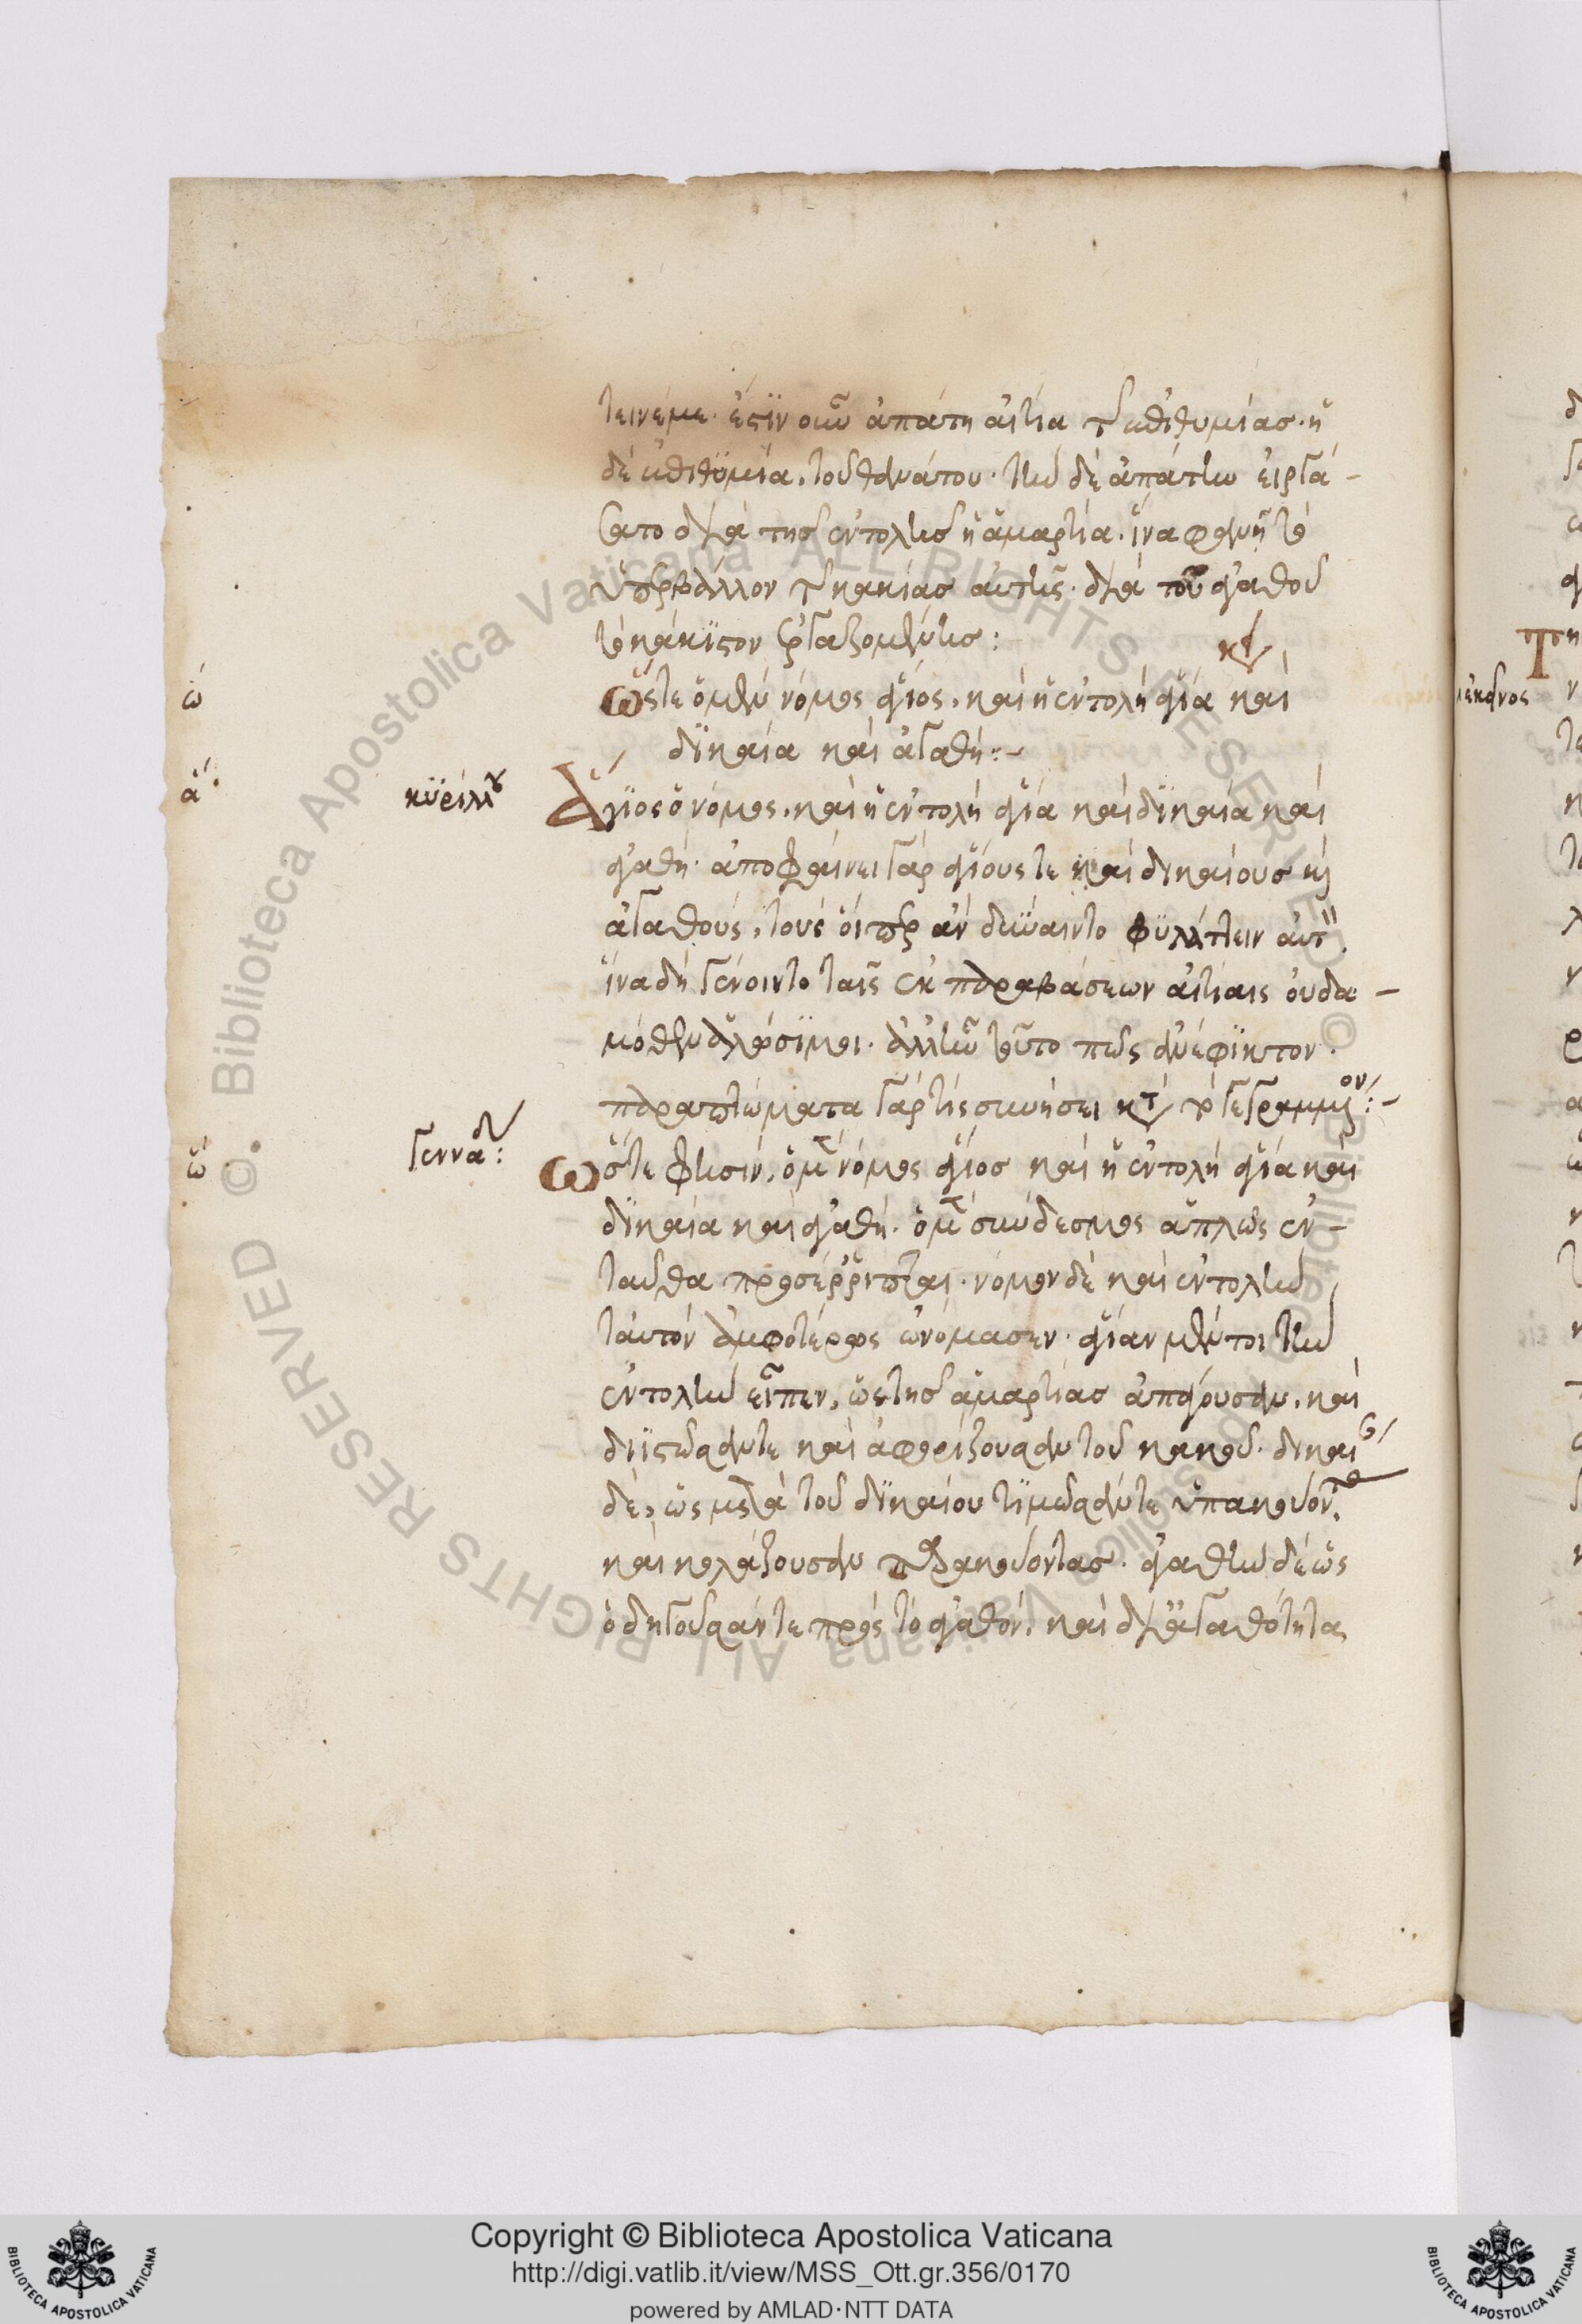 τεινέ με· ἔστιν οὖν ἀπάτη αἰτία τῆς ἐπιθυμίας· ἡ
δὲ ἐπιθυμία, τοῦ θανάτου· τὴν δὲ ἀπάτην εἰργά-
σατο διὰ τῆς ἐντολῆς ἡ ἁμαρτία· ἵνα φανῇ τὸ
ὑπερβάλλον τῆς κακίας αὐτῆς· διὰ τοῦ ἀγαθοῦ
τὸ κάκιστον ἐργαζομένης:
ὥστε ὁ μὲν νόμος ἅγιος, καὶ ἡ ἐντολὴ ἁγία καὶ
δικαία καὶ ἀγαθή:~
κυρίλλου
Ἅγιος ὁ νόμος, καὶ ἡ ἐντολὴ ἁγία καὶ δικαία καὶ
ἀγαθή· ἀποφαίνει γὰρ ἁγίους τε καὶ δικαίους καὶ
ἀγαθούς, τοὺς οἵπερ ἂν δύναιντο φυλάττειν αὐτ
ἵνα δὴ γένοιντο ταῖς ἐκ παραβάσεων αἰτίαις οὐδα-
μόθεν ἁλώσιμοι· ἀλλ' ἦν τοῦτό πως ἀνέφικτον·
παραπτώματα γὰρ τίς συνήσει κατὰ τὸ γεγραμμένον:-
γενναδ:
ὥστε φησίν, ὁ μὲν νόμος ἅγιος καὶ ἡ ἐντολὴ ἁγία καὶ
δικαία καὶ ἀγαθή· ὁ μὲν σύνδεσμος ἁπλῶς ἐν-
ταῦθα προσέρριπται· νόμον δὲ καὶ ἐντολὴν
ταὐτὸν ἀμφοτέρως ὠνόμασεν· ἁγίαν μέντοι τὴν
ἐντολὴν εἶπεν, ὡς τῆς ἁμαρτίας ἀπάγουσαν, καὶ
διιστῶσαν τε καὶ ἀφορίζουσαν τοῦ κακοῦ· δικαίαν
δὲ, ὡς μετὰ τοῦ δικαίου τιμῶσαν τε ὑπακούοντας
καὶ κολάζουσαν παρακούοντας· ἀγαθὴν δὲ ὡς
ὁδηγοῦσάν τε πρὸς τὸ ἀγαθόν, καὶ δι' ἀγαθότητα